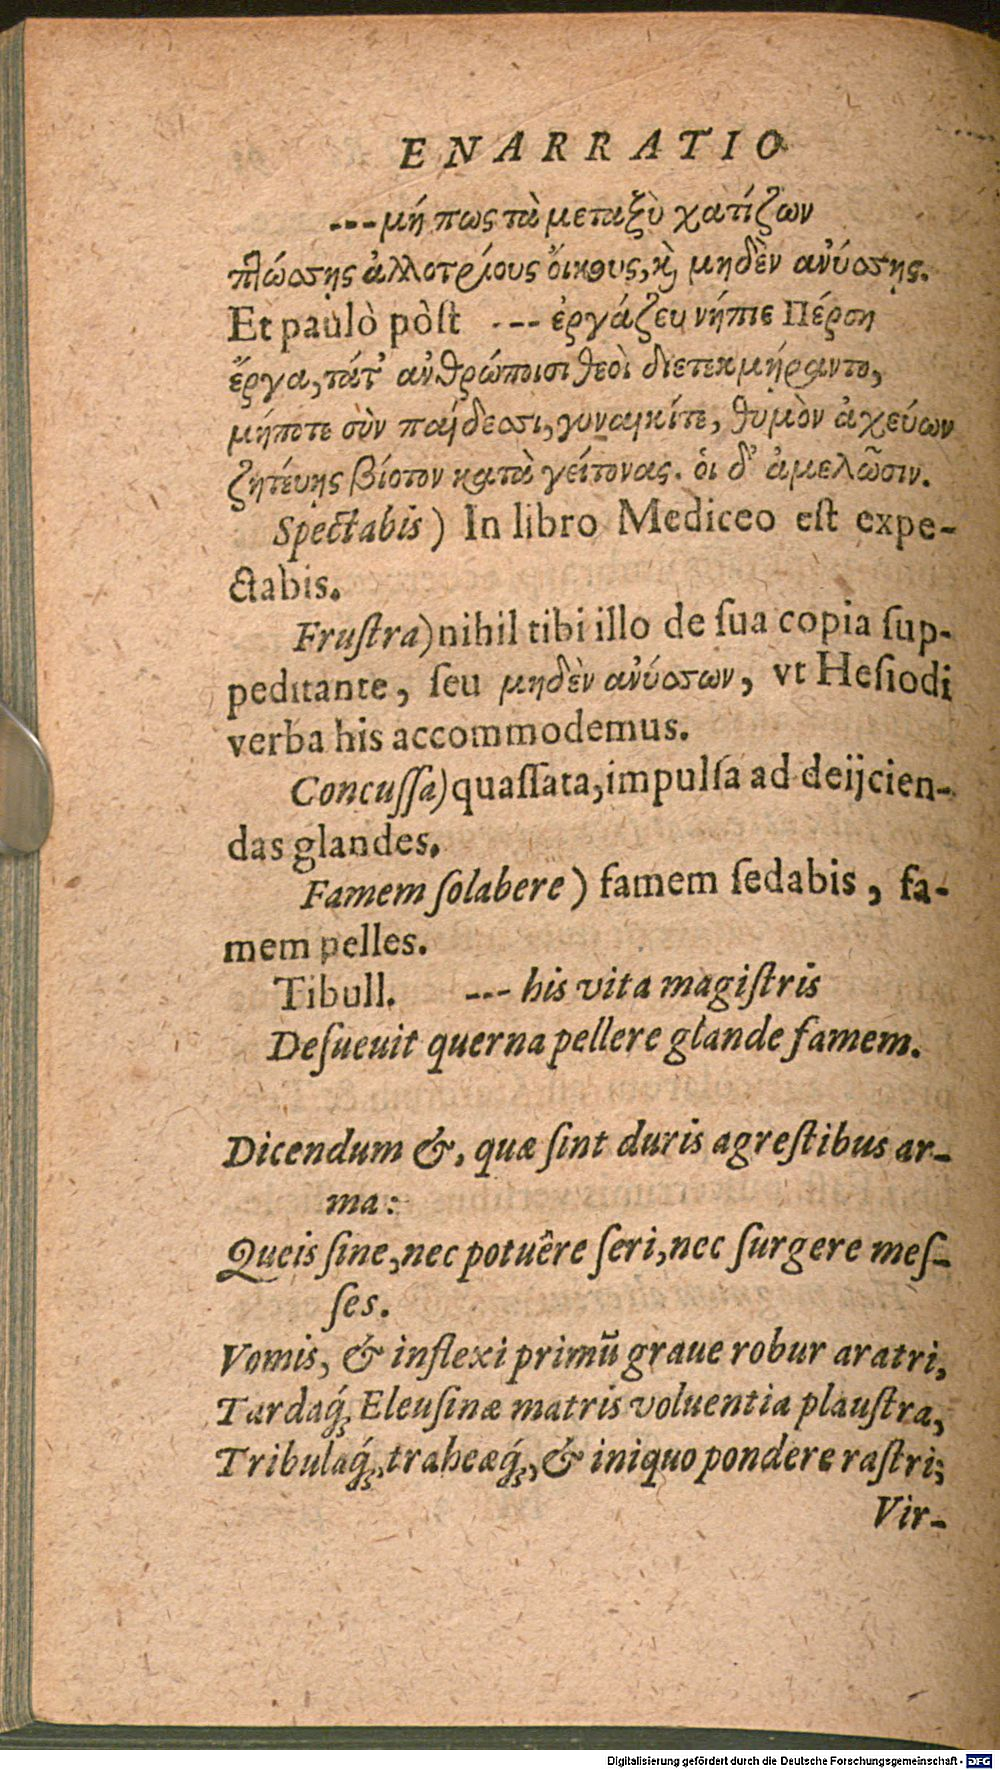 ENARRATIO
---μή πως τὰ μεταξὺ χατίζων
πτώσσῃς ἀλλοτρίους ὄικους, κỳ μηδὲν ἀνύσσῃς.
Et paulò pòſt --- ἐργάζευ νήπιε Πέρση
ἔργα, τάτ' ἀνθρώποισι θεοὶ διετεκμήραντο,
μήποτε σὺν παίδεσσι, γυναικίτε, θυμὸν ἀχεύων
ζητέυῃς βίοτον κατὰ γείτονας. ὁι δ' ἀμελῶσιν.
Spectabis) In libro Mediceo eſt expe-
ctabis.
Fruſtra) nihil tibi illo de ſua copia ſup-
peditante, ſeu μηδὲν ἀνύσσων, vt Heſiodi
verba his accommodemus.
Concuſſa) quaſſata, impulſa ad deijcien-
das glandes.
Famem ſolabere) famem ſedabis, fa-
mem pelles.
Tibull. --- his vita magiſtris
Deſueuit querna pellere glande famem.
Dicendum &, quæ ſint duris agreſtibus ar-
ma:
Queis ſine, nec potuêre ſeri, nec ſurgere meſ-
ſes.
Vomis, & inflexi primũ graue robur aratri,
Tardaq́; Eleuſinæ matris voluentia plauſtra,
Tribulaq́;, traheæq́;, & iniquo pondere raſtri;
Vir-
Digitalisierung gefördert durch die Deutsche Forschungsgemeinschaft - DFG